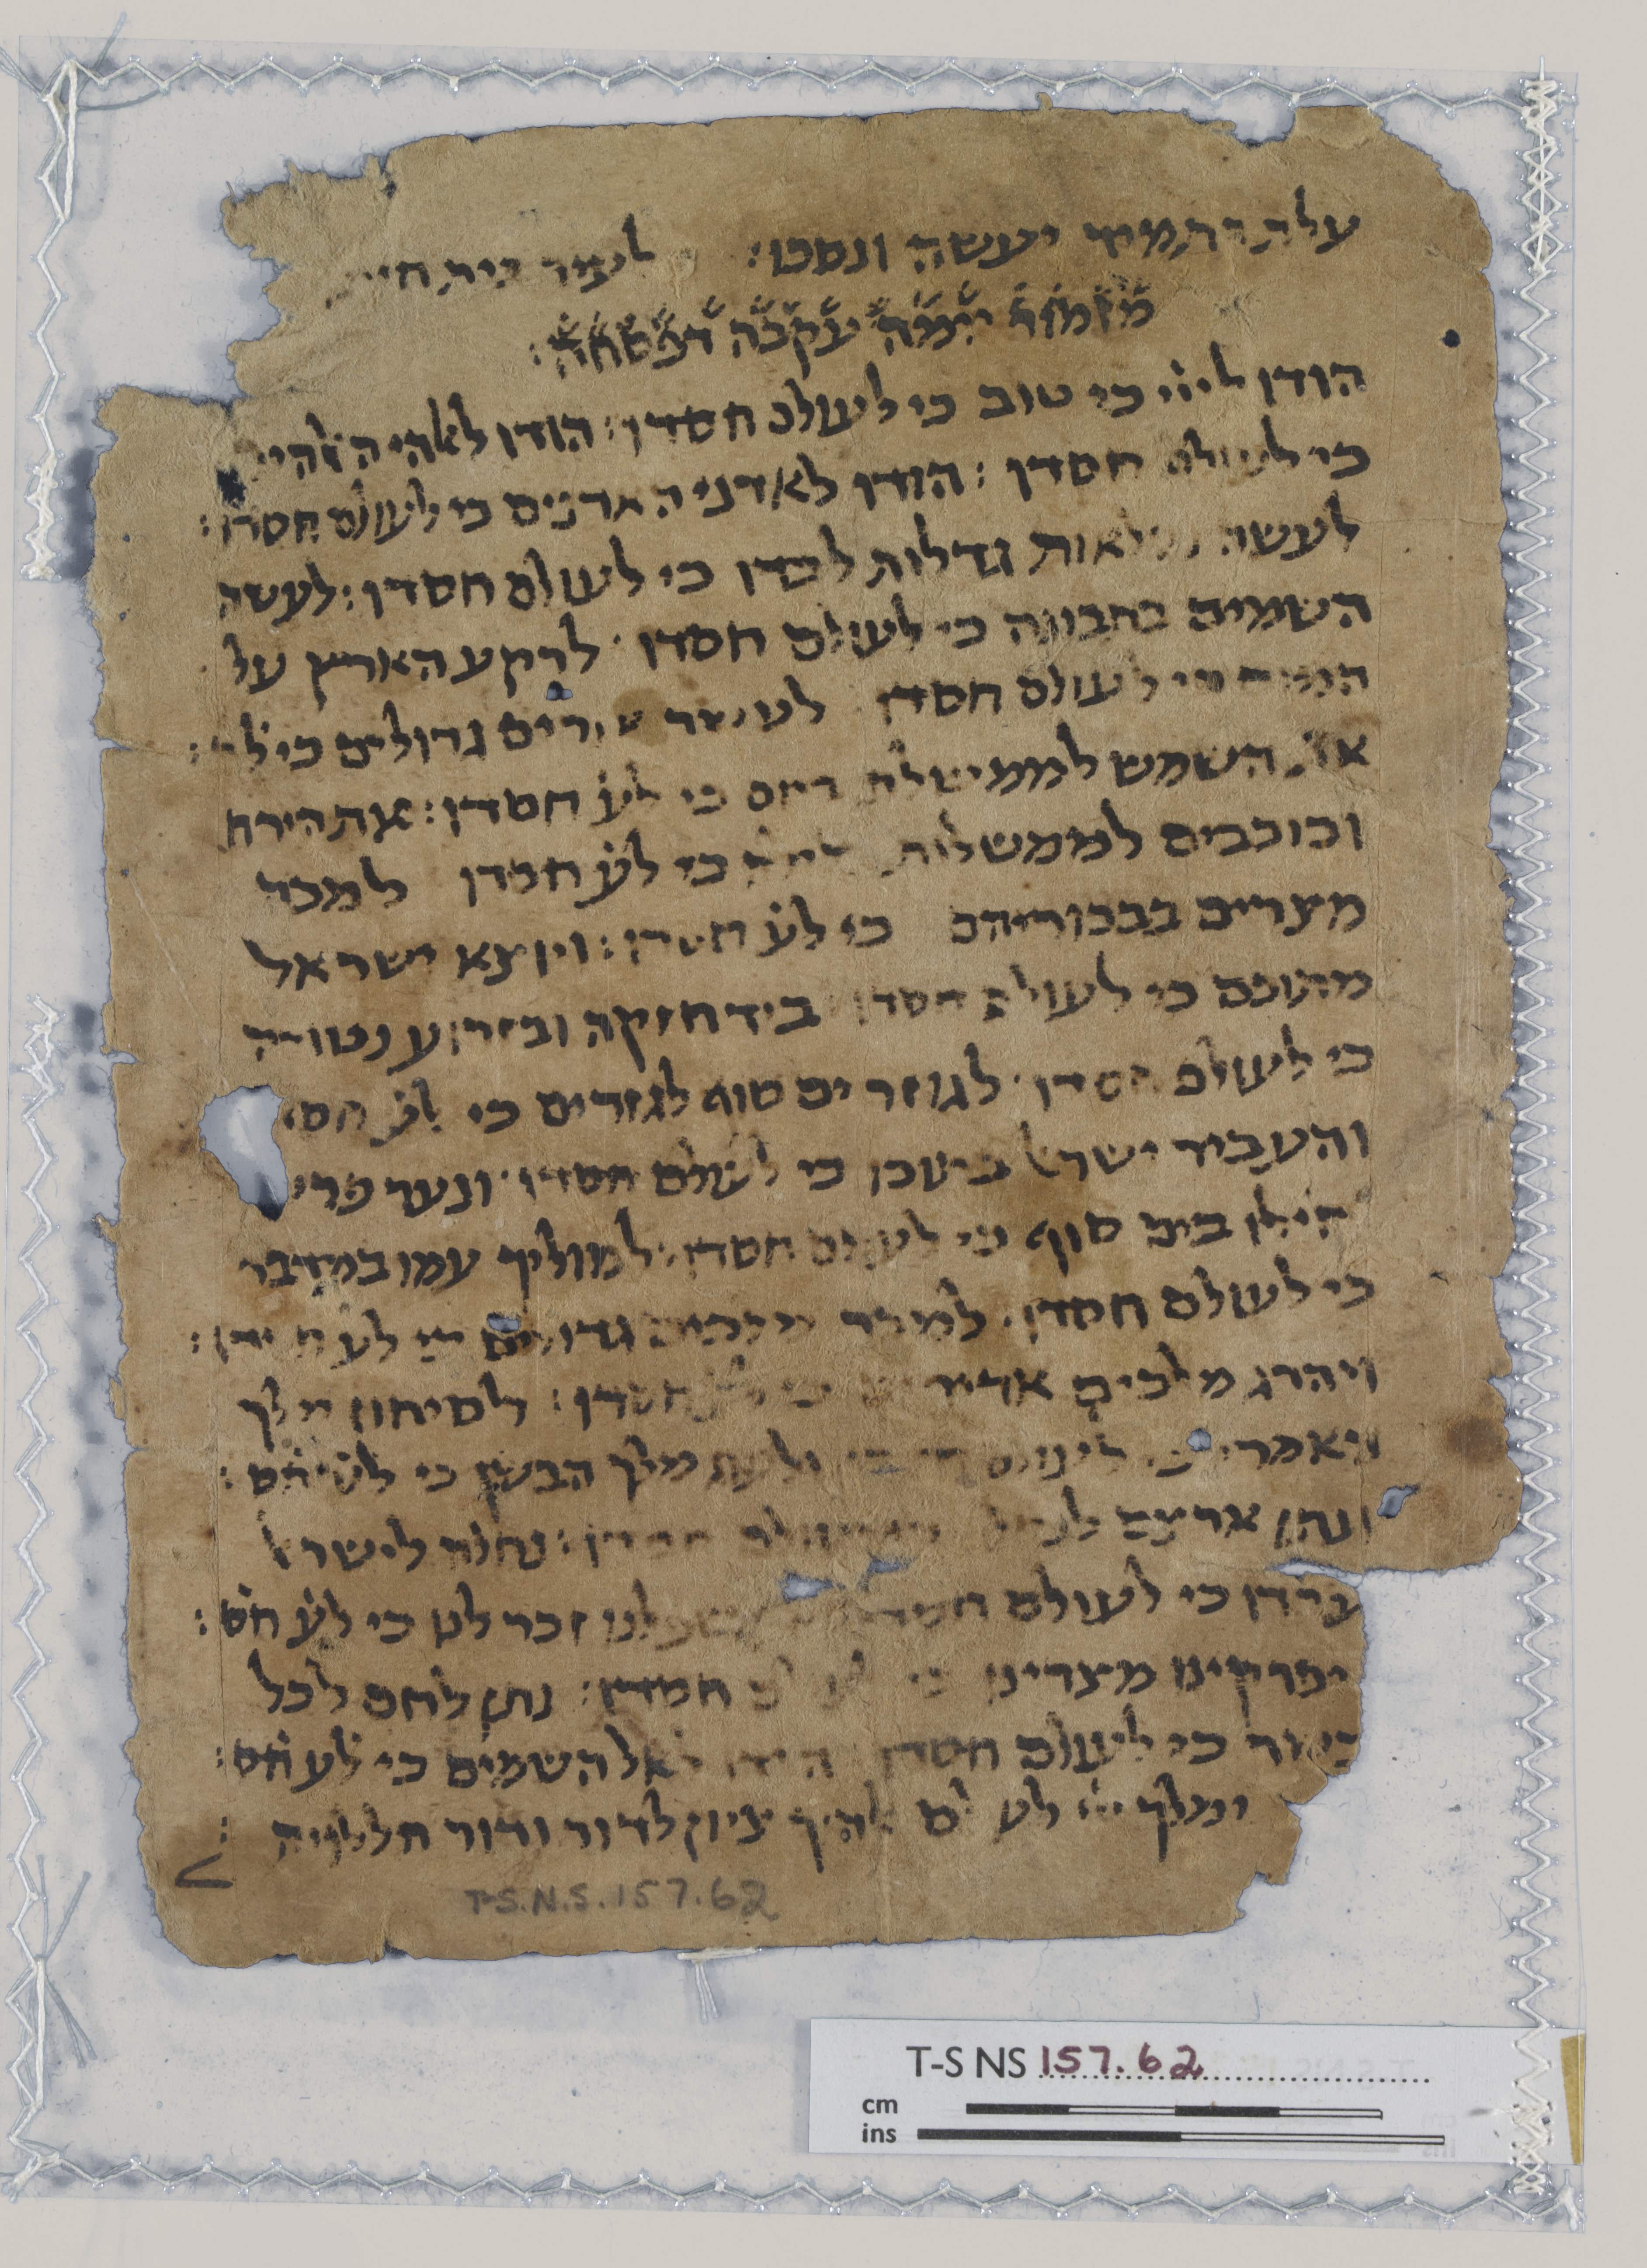 עלת התמיד יעשה ונסכו: לעמד בית
מזמור יימה עקבה דפסחה:
הודו לייי כי טוב כי לעולם חסדו: הודו לאלהי האלהים
כי לעולם חסדו: הודו לאדני האדנים כי לעולם חסדו:
לעשה נפלאות גדלות לבדו כי לעולם חסדו: לעשה
השמים בתבונה כי לעולם חסדו· לרקע הארץ על
המים כי לעולם חסדו לעשה אורים גדולים כי לע:
את השמש לממשלת ביום כי לע חסדו: את הירח
וכוכבים לממשלות בלילה כי לע חסדו למכה
מצרים בבכוריהם כי לע חסדו: ויוצא ישראל
מתוכם כי לעולם חסדו ביד חזקה ובזרוע נטויה
כי לעולם חסדו· לגוזר ים סוף לגזרים כי לע חס
והעביר ישראל בתוכו כי לעולם חסדו· ונער פר
חילו בים סוף כי לעולם חסדו: למוליך עמו במדבר
כי לעולם חסדו· למכה מלכים גדולים כי לע חסדו:
ויהרג מלכים אדירים כי לע חסדו: לסיחון מלך
האמרי כי ולעוג מלך הבשן כי לע חס:
ונתן ארצם לנחלה כי לעולם חסדו: נחלה לישראל
עבדו כי לעולם חסדו שבשפלנו זכר לנו כי לע חס:
יפרקינו מצרינו כי לעולם חסדו: נתן לחם לכל
בשר כי לעולם חסדו הודו לאל השמים כי לע חס:
ימלך ייי לעולם אלהיך ציון לדור ודור הללויה:
T-S.N.S.157.62
T-S NS 157.62
cm
ins